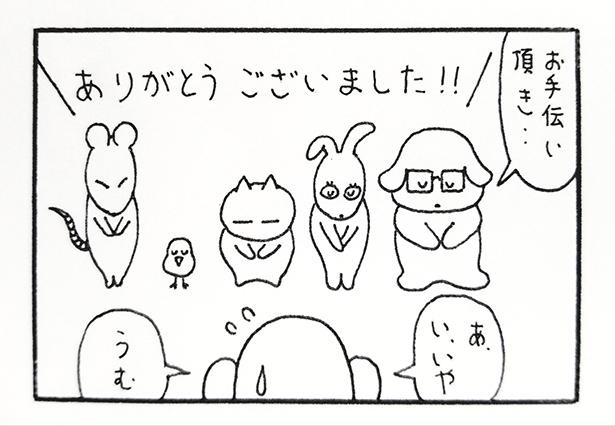 お手伝い
頂き・・
ありがとうございました!!
あ、
い、いや
うむ